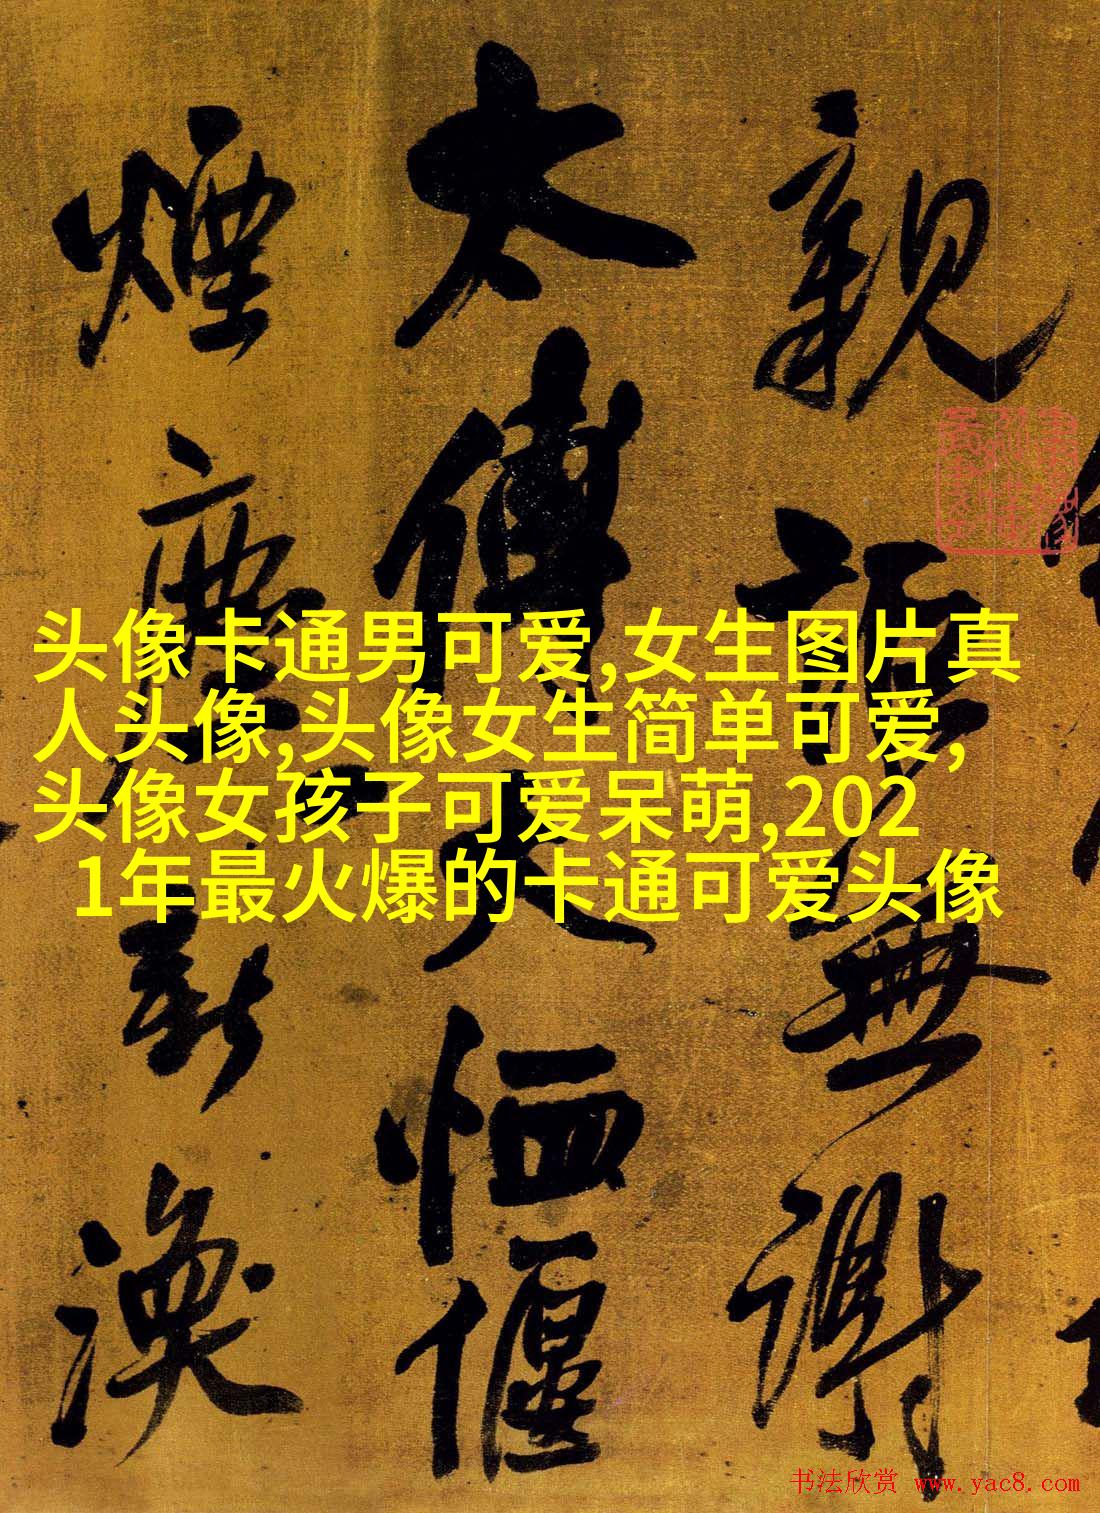 头像卡通男可爱,女生图片真
人头像,头像女生简单可爱,
头像女孩子可爱呆萌,202
1年最火爆的卡通可爱头像
親無謝
太傅恤偃
煙塵
书法欣赏 www.yac8.com